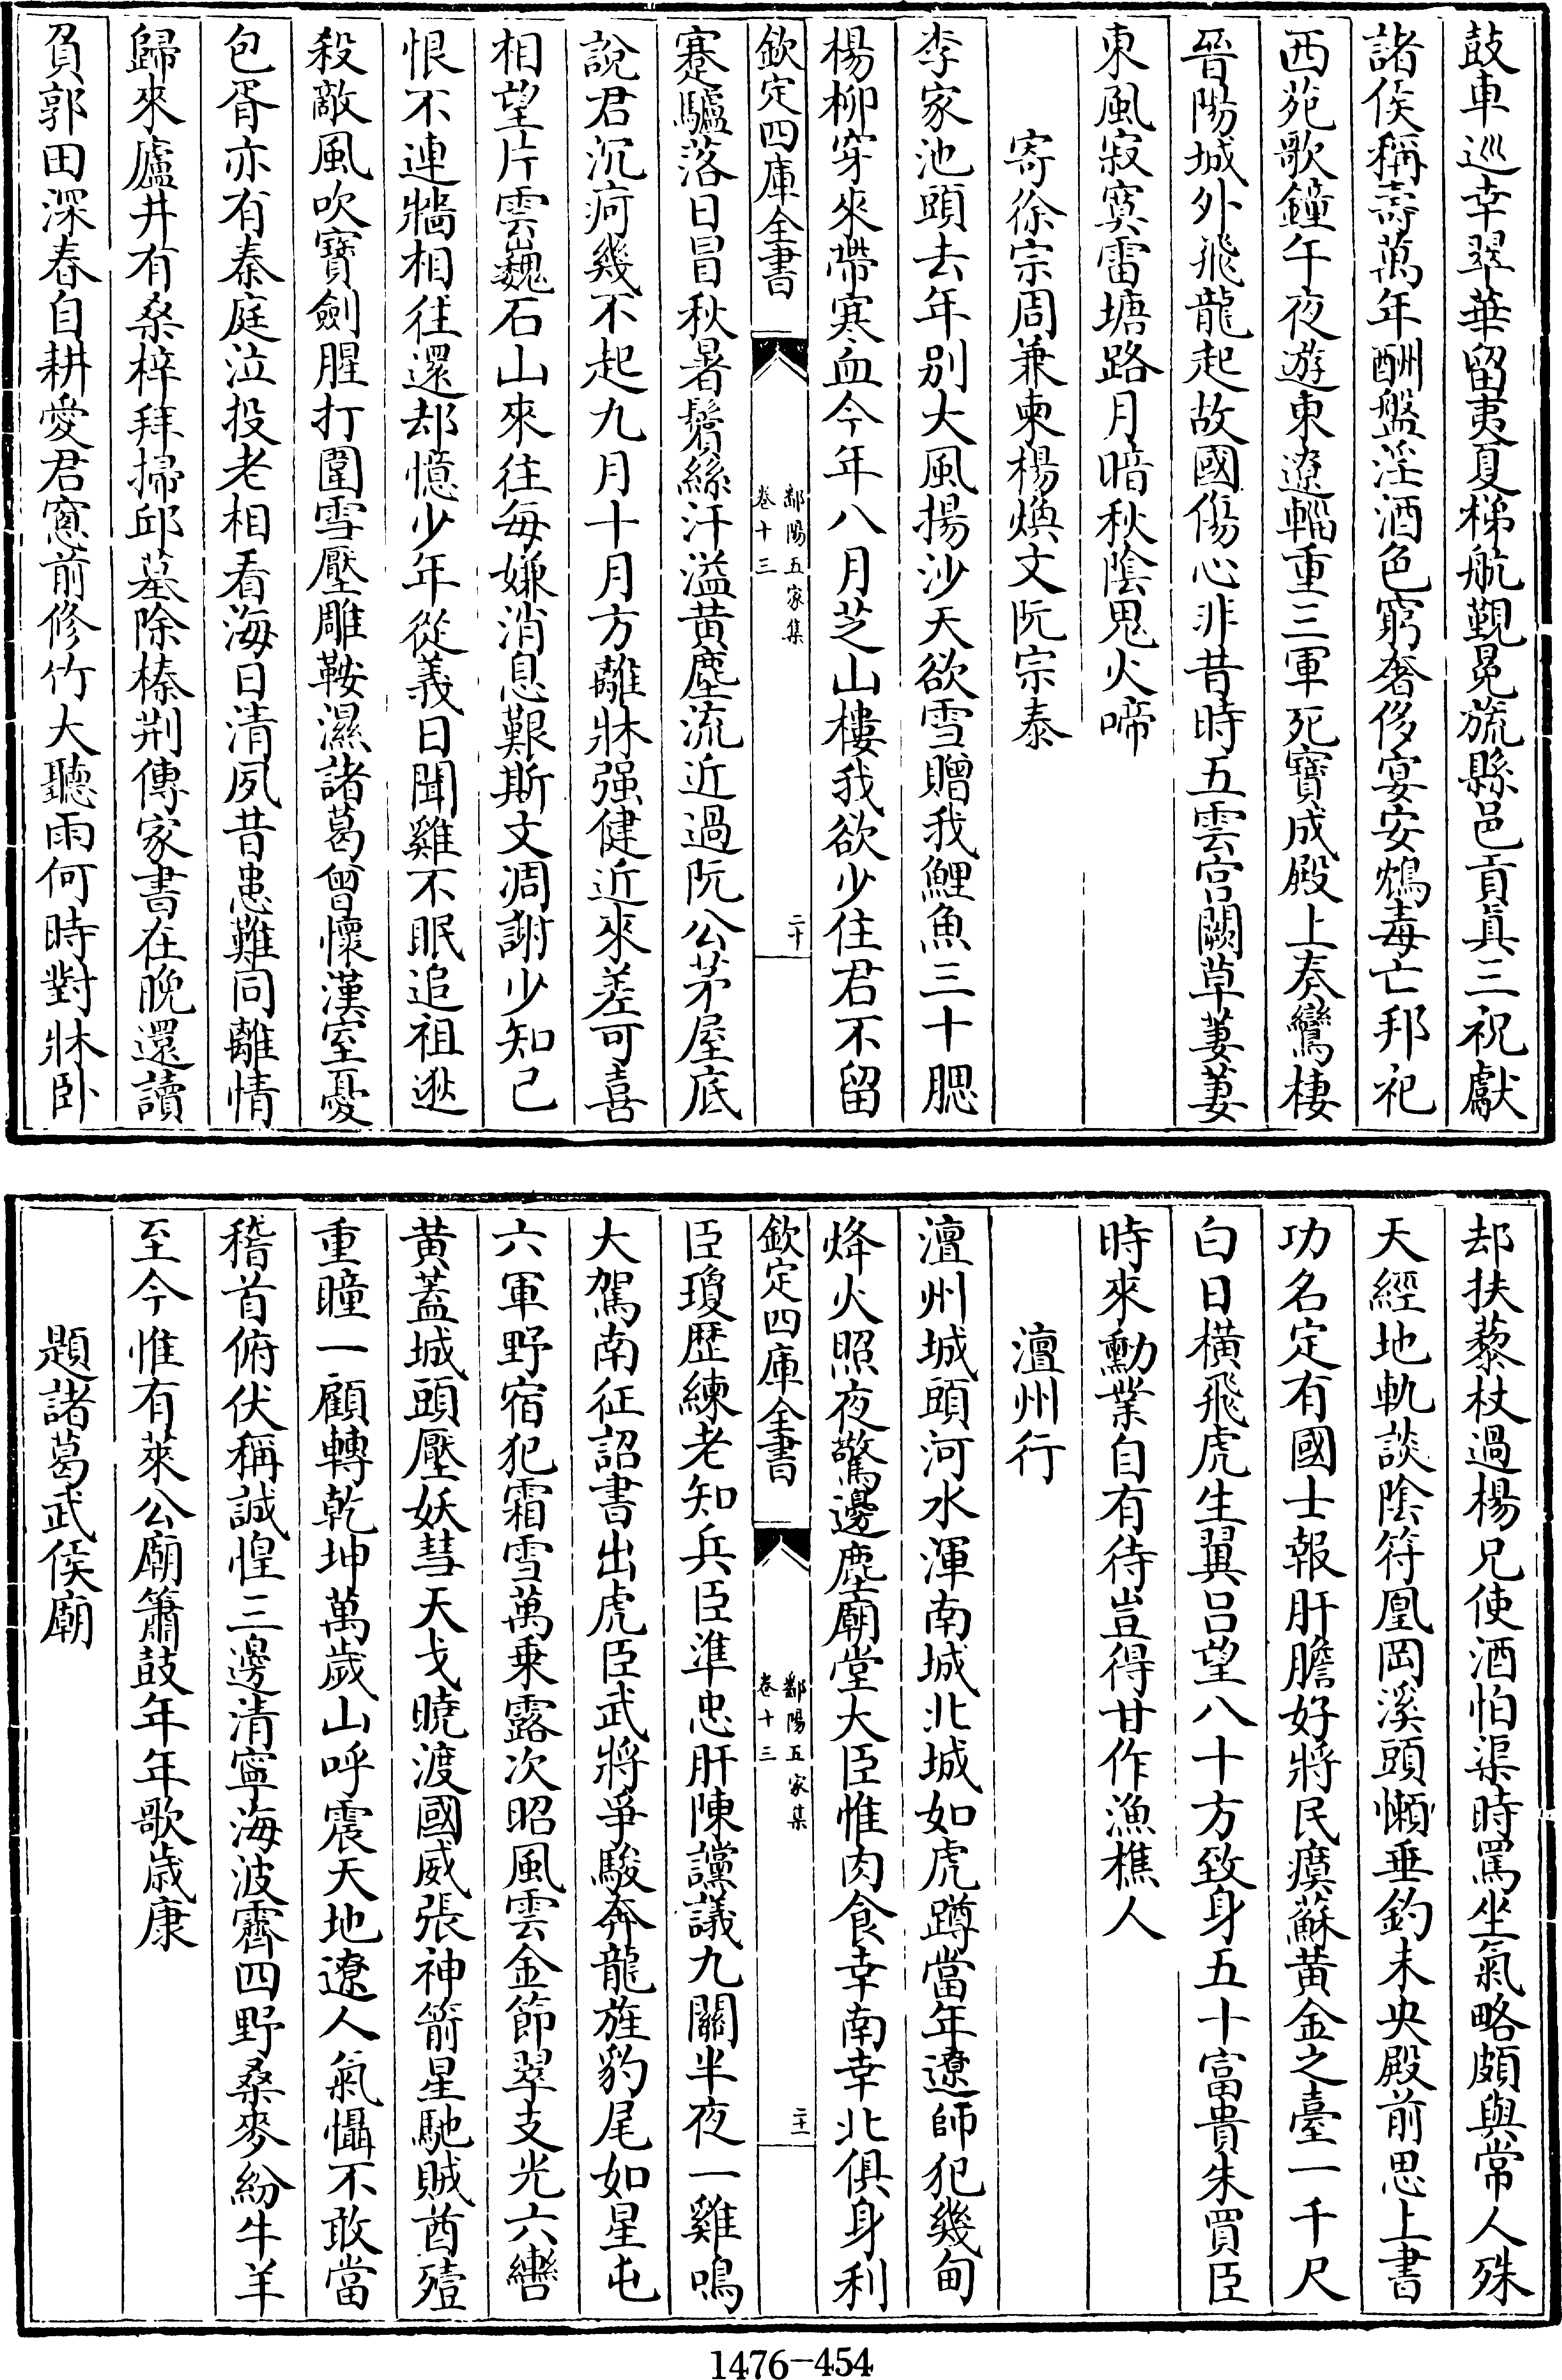 鼓車巡幸翠華留夷夏梯航覲冕旒縣邑貢真三祝獻
諸侯稱壽萬年酬盤淫酒色窮奢侈宴安鴆毒亡邦祀
西苑歌鐘午夜遊東遼輜重三軍死寶成殿上奏鸞棲
晉陽城外飛龍起故國傷心非昔時五雲宫闕草萋萋
東風寂寞雷塘路月暗秋陰鬼火啼
寄徐宗周兼柬楊煥文阮宗泰
李家池頭去年别大風揚沙天欲雪贈我鯉魚三十腮
楊柳穿來帶寒血今年八月芝山樓我欲少住君不留
欽定四庫全書
鄱陽五家集
卷十三
二十
蹇驢落日冒秋暑鬢絲汗溢黄塵流近過阮公茅屋底
說君沉疴幾不起九月十月方離牀强健近來差可喜
相望片雲巍石山來往每嫌消息艱斯文凋謝少知己
恨不連牆相往還却憶少年從義日聞雞不眠追祖逖
殺敵風吹寶劍腥打圍雪壓雕鞍濕諸葛曾懷漢室憂
包胥亦有秦庭泣投老相看海日清夙昔患難同離情
歸來廬井有桑梓拜掃邱墓除榛荆傳家書在晚還讀
負郭田深春自耕愛君窻前修竹大聽雨何時對牀卧
却扶藜杖過楊兄使酒怕渠時罵坐氣略頗與常人殊
天經地軌談陰符凰岡溪頭懶垂釣未央殿前思上書
功名定有國士報肝膽好將民瘼蘇黄金之臺一千尺
白日横飛虎生翼吕望八十方致身五十富貴朱買臣
時來勳業自有待豈得甘作漁樵人
澶州行
澶州城頭河水渾南城北城如虎蹲當年遼師犯畿甸
烽火照夜驚邊塵廟堂大臣惟肉食幸南幸北俱身利
欽定四庫全書
鄱陽五家集
卷十三
二十一
臣瓊歷練老知兵臣準忠肝陳讜議九關半夜一雞鳴
大駕南征詔書出虎臣武將爭駿奔龍旌豹尾如星屯
六軍野宿犯霜雪萬乗露次昭風雲金節翠支光六轡
黄蓋城頭壓妖彗天戈曉渡國威張神箭星馳賊酋殪
重瞳一顧轉乾坤萬歲山呼震天地遼人氣懾不敢當
稽首俯伏稱誠惶三邊清寧海波霽四野桑麥紛牛羊
至今惟有萊公廟簫鼓年年歌歲康
題諸葛武侯廟
1476-454